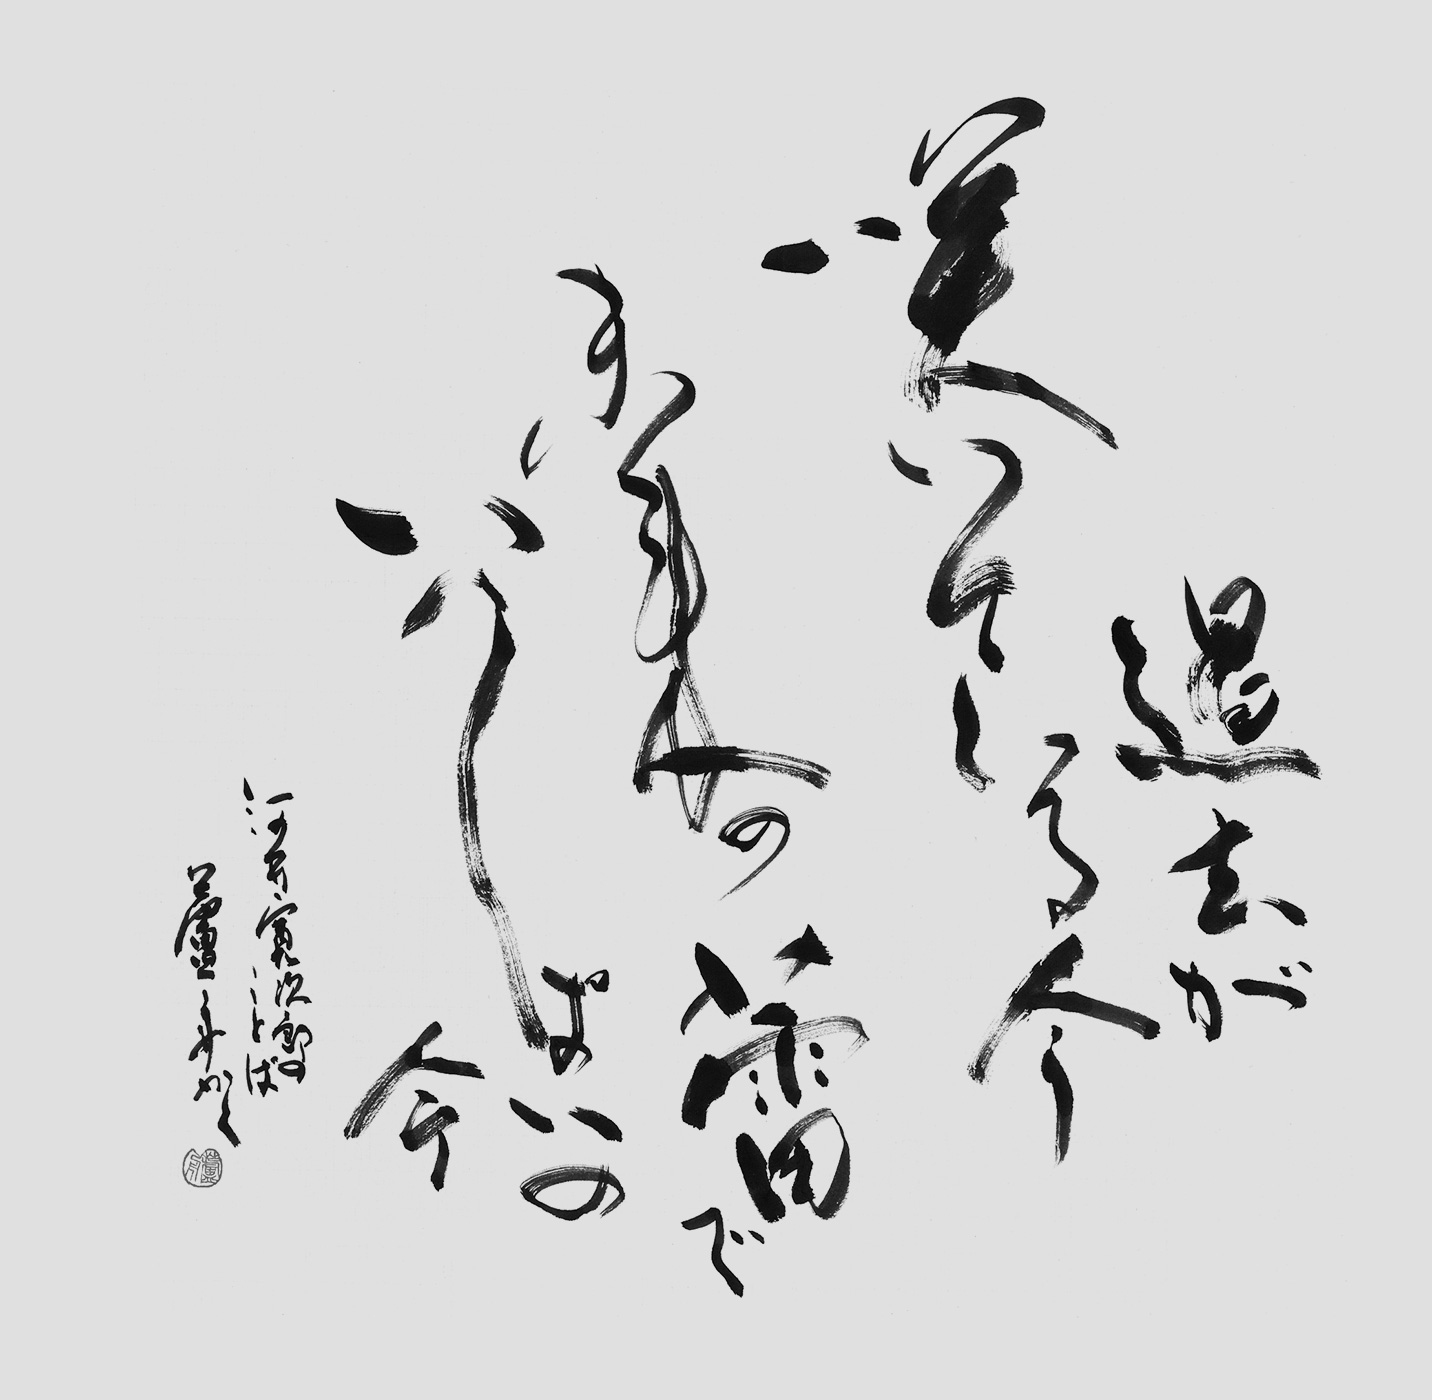 過去が
咲いている今
未来の蕾で
いっぱいの今
河井寛次郎の
ことば
かく